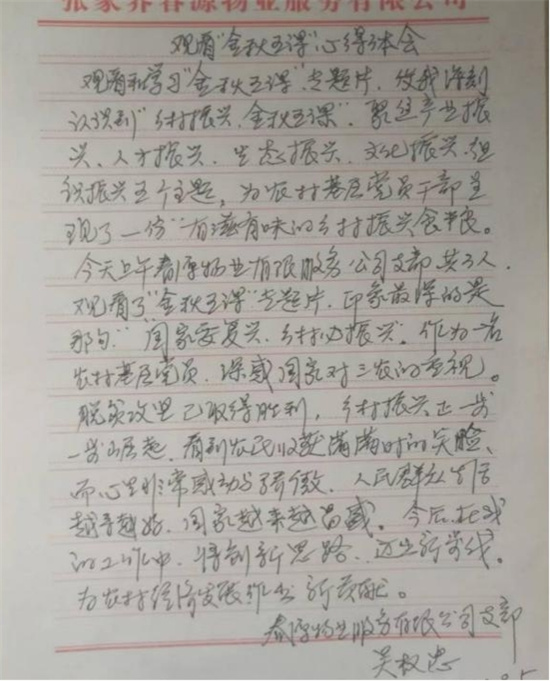 张家界春源物业服务有限公司
观看“金秋五课”心得体会
观看和学习“金秋五课”专题片，使我深刻
认识到“乡村振兴，金秋五课”，聚焦产业振
兴、人才振兴、生态振兴、文化振兴、组
织振兴五个主题，为农村基层党员干部呈
现了一份“有滋有味的乡村振兴食粮。
今天上午春源物业有限服务公司支部共3人，
观看了“金秋五课”专题片，印象最深的是
那句：“国家要复兴，乡村必振兴”。作为一名
农村基层党员，深感国家对三农的重视。
脱贫攻坚已取得胜利，乡村振兴正一步
一步崛起，看到农民收获满满时的笑脸、
而心生非常感动与骄傲，人民群众生活
越来越好，国家越来越昌盛。今后在我
的工作中，将创新思路，迈出新步伐。
为农村经济发展作出新贡献。
春源物业服务有限公司支部
吴权忠